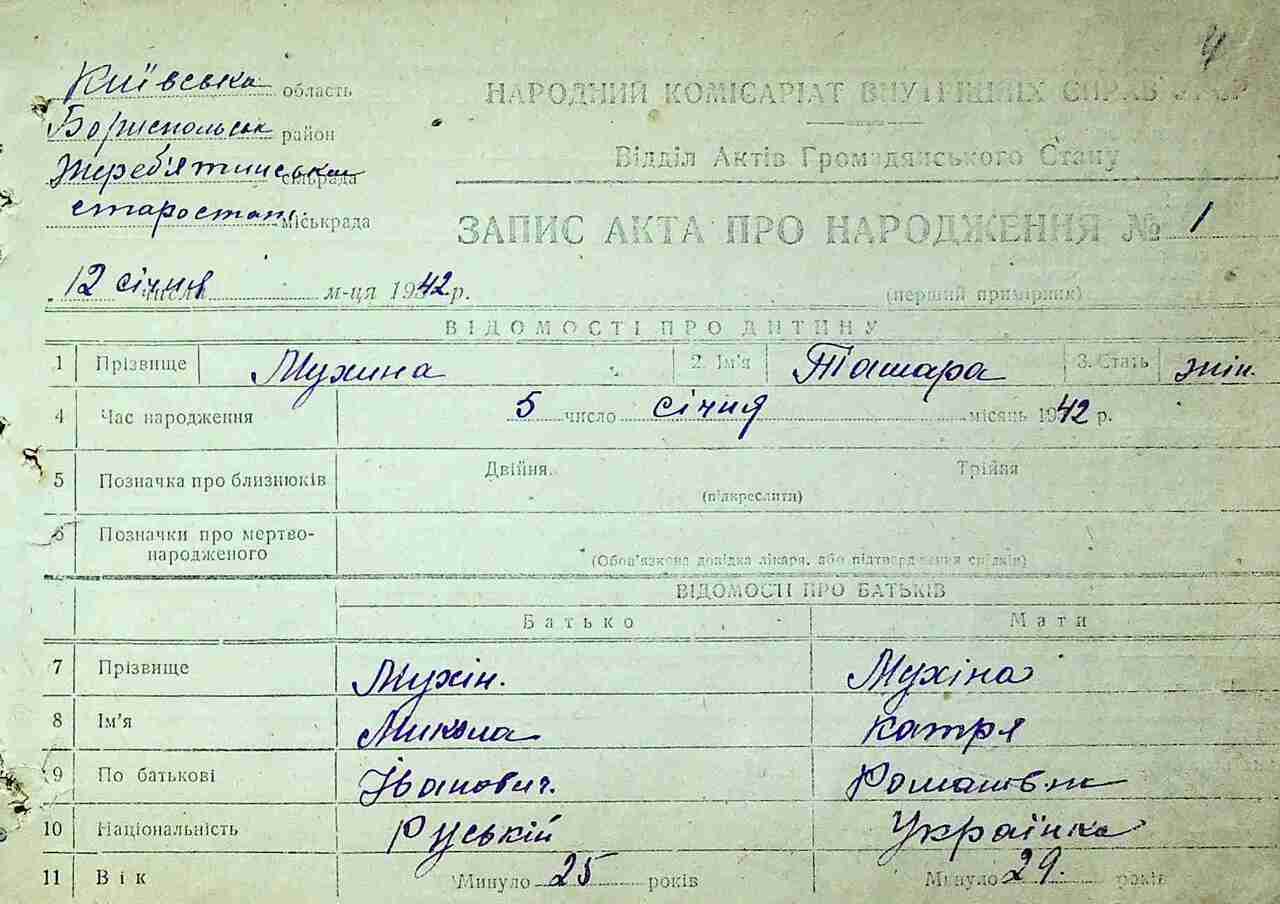 4
Київська область
НАРОДНИЙ КОМІСАРІАТ ВНУТРІШНІХ СПРАВ УРСР
Бориспольськ район
Відділ Актів Громадянського Стану
Жереб'ятинська сільрада
старостат. міськрада
ЗАПИС АКТА ПРО НАРОДЖЕННЯ № 1
12 січня числа м-ця 1942 р.
(перший примірник)
ВІДОМОСТІ ПРО ДИТИНУ
1 Прізвище Мухина 2. Ім'я Тамара 3. Стать жін.
4 Час народження 5 число січня місяць 1942 р.
5 Позначка про близнюків Двійня. Трійня
(підкреслити)
6 Позначки про мертво-
народженого
(Обов'язкова довідка лікаря, або підтвердження свідків)
ВІДОМОСТІ ПРО БАТЬКІВ
Батько Мати
7 Прізвище Мухін. Мухіна
8 Ім'я Микола катря
9 По батькові Іванович.
10 Національність Руській Українка
11 Вік Минуло 25 років Минуло 29. років